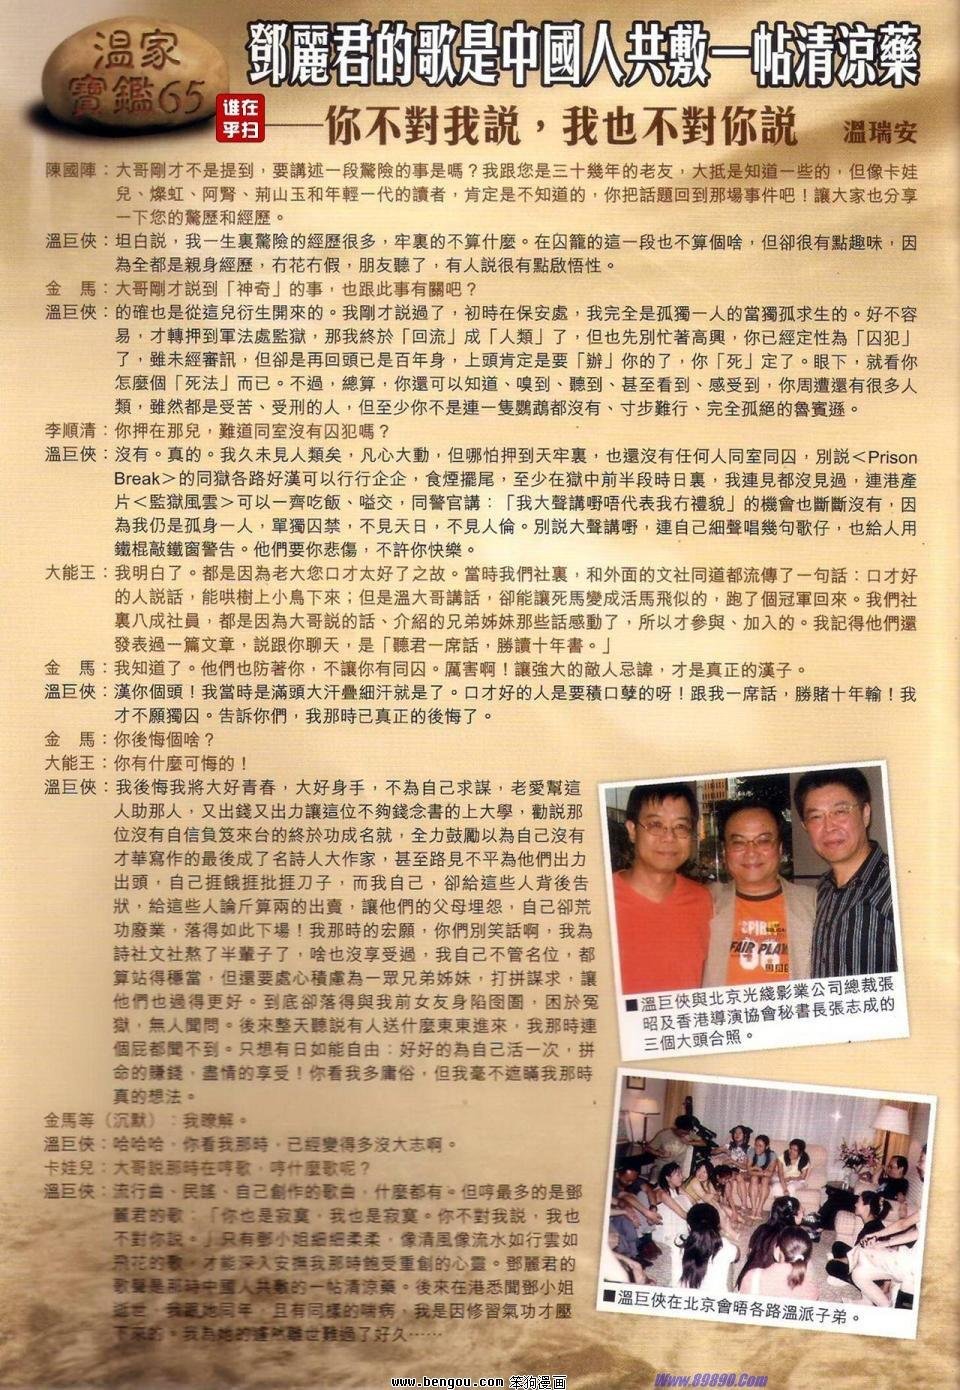 溫家
寶鑑65
鄧麗君的歌是中國人共敷一帖清涼藥
谁在
乎扫
——你不對我說，我也不對你說　溫瑞安
陳國陣：大哥剛才不是提到，要講述一段驚險的事是嗎？我跟您是三十幾年的老友，大抵是知道一些的，但像卡娃
兒、燦虹、阿腎、荊山玉和年輕一代的讀者，肯定是不知道的，你把話題回到那場事件吧！讓大家也分享
一下您的驚歷和經歷。
溫巨俠：坦白說，我一生裏驚險的經歷很多，牢裏的不算什麼。在囚籠的這一段也不算個啥，但卻很有點趣味，因
為全都是親身經歷，冇花冇假，朋友聽了，有人說很有點啟悟性。
金　馬：大哥剛才說到「神奇」的事，也跟此事有關吧？
溫巨俠：的確也是從這兒衍生開來的。我剛才說過了，初時在保安處，我完全是孤獨一人的當獨孤求生的。好不容
易，才轉押到軍法處監獄，那我終於「回流」成「人類」了，但也先別忙著高興，你已經定性為「囚犯」
了，雖未經審訊，但卻是再回頭已是百年身，上頭肯定是要「辦」你的了，你「死」定了。眼下，就看你
怎麼個「死法」而已。不過，總算，你還可以知道、嗅到、聽到、甚至看到、感受到，你周遭還有很多人
類，雖然都是受苦、受刑的人，但至少你不是連一隻鸚鵡都沒有、寸步難行、完全孤絕的魯賓遜。
李順清：你押在那兒，難道同室沒有囚犯嗎？
溫巨俠：沒有。真的。我久未見人類矣，凡心大動，但哪怕押到天牢裏，也還沒有任何人同室同囚，別說＜Prison
Break＞的同獄各路好漢可以行行企企，食煙擺尾，至少在獄中前半段時日裏，我連見都沒見過，連港產
片＜監獄風雲＞可以一齊吃飯、嗌交，同警官講：「我大聲講嘢唔代表我冇禮貌」的機會也斷斷沒有，因
為我仍是孤身一人，單獨囚禁，不見天日，不見人倫。別說大聲講嘢，連自己細聲唱幾句歌仔，也給人用
鐵棍敲鐵窗警告。他們要你悲傷，不許你快樂。
大能王：我明白了。都是因為老大您口才太好了之故。當時我們社裏，和外面的文社同道都流傳了一句話：口才好
的人說話，能哄樹上小鳥下來；但是溫大哥講話，卻能讓死馬變成活馬飛似的，跑了個冠軍回來。我們社
裏八成社員，都是因為大哥說的話、介紹的兄弟姊妹那些話感動了，所以才參與、加入的。我記得他們還
發表過一篇文章，說跟你聊天，是「聽君一席話，勝讀十年書。」
金　馬：我知道了。他們也防著你，不讓你有同囚。厲害啊！讓強大的敵人忌諱，才是真正的漢子。
溫巨俠：漢你個頭！我當時是滿頭大汗疊細汗就是了。口才好的人是要積口孽的呀！跟我一席話，勝賭十年輸！我
才不願獨囚。告訴你們，我那時已真正的後悔了。
金　馬：你後悔個啥？
大能王：你有什麼可悔的！
溫巨俠：我後悔我將大好青春，大好身手，不為自己求謀，老愛幫這
人助那人，又出錢又出力讓這位不夠錢念書的上大學，勸說那
位沒有自信負笈來台的終於功成名就，全力鼓勵以為自己沒有
才華寫作的最後成了名詩人大作家，甚至路見不平為他們出力
出頭，自己捱餓捱批捱刀子，而我自己，卻給這些人背後告
狀，給這些人論斤算兩的出賣，讓他們的父母埋怨，自己卻荒
功廢業，落得如此下場！我那時的宏願，你們別笑話啊，我為
詩社文社熬了半輩子了，啥也沒享受過，我自己不管名位，都
算站得穩當，但還要處心積慮為一眾兄弟姊妹，打拼謀求，讓
他們也過得更好。到底卻落得與我前女友身陷囹圄，困於冤
獄，無人聞問。後來整天聽說有人送什麼東東進來，我那時連
個屁都聞不到。只想有日如能自由：好好的為自己活一次，拼
命的賺錢，盡情的享受！你看我多庸俗，但我毫不遮瞞我那時
真的想法。
金馬等（沉默）：我瞭解。
溫巨俠：哈哈哈，你看我那時，已經變得多沒大志啊。
卡娃兒：大哥說那時在哼歌，哼什麼歌呢？
溫巨俠：流行曲、民謠、自己創作的歌曲，什麼都有。但哼最多的是鄧
麗君的歌：「你也是寂寞，我也是寂寞。你不對我說，我也
不對你說。」只有鄧小姐細細柔柔，像清風像流水如行雲如
飛花的歌，才能深入安撫我那時飽受重創的心靈。鄧麗君的
歌聲是那時中國人共敷的一帖清涼藥。後來在港悉聞鄧小姐
逝世，我跟她同年，且有同樣的喘病，我是因修習氣功才壓
下來的。我為她的遽然離世難過了好久……
SPIRIT
FAIR PLAY
■溫巨俠與北京光綫影業公司總裁張
昭及香港導演協會秘書長張志成的
三個大頭合照。
■溫巨俠在北京會晤各路溫派子弟。
www.bengou.com 笨狗漫画
Www.89890.Com